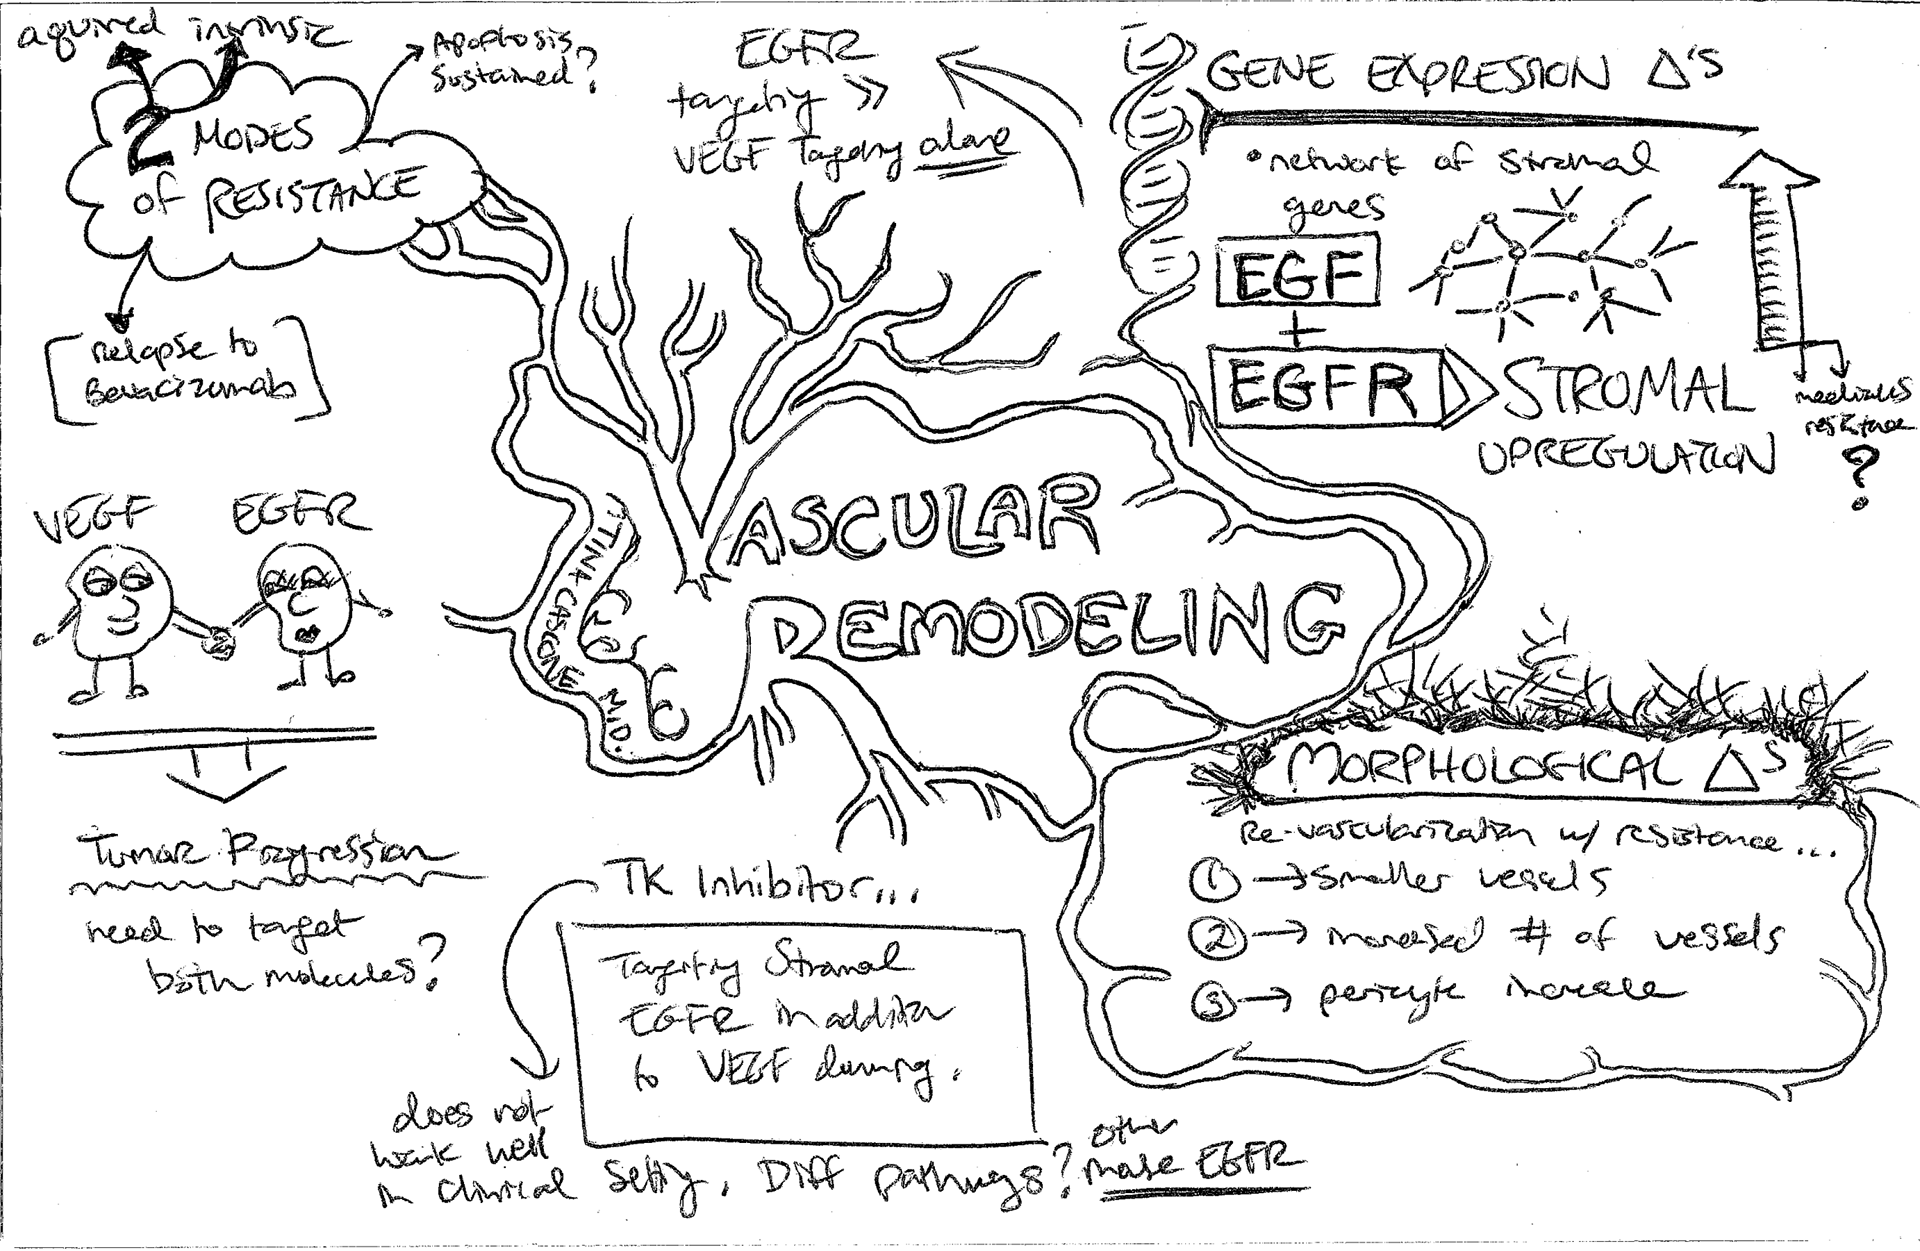 aquired intrinsic
Apoptosis
Sustained?
2 MODES
of RESISTANCE
[Relapse to
Bevacizumab]
EGFR
targeting >>
VEGF Targeting alone
GENE EXPRESSION Δ'S
• network of stromal
genes
EGF
+
EGFR
STROMAL
UPREGULATION
mediates
resistance
?
VEGF EGFR
Tumor Progression
need to target
both molecules?
VASCULAR
REMODELING
TINA CASCONE M.D.
TK Inhibitor...
Targeting Stromal
EGFR in addition
to VEGF
does not
work well
in clinical setting. Diff pathways?
other
EGFR
MORPHOLOGICAL Δ'S
Re-vascularization w/ resistance...
① → Smaller vessels
② → increased # of vessels
③ → pericyte increase